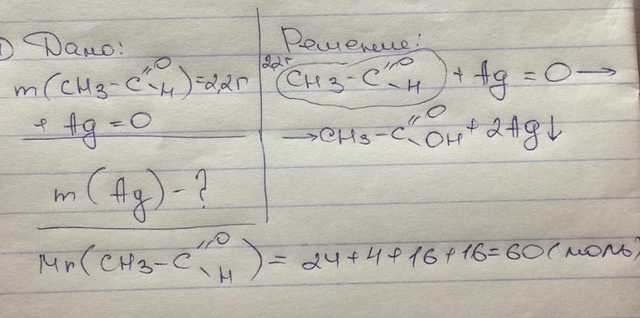 1) Дано:
m(CH3-C=O-H)=2,2г
+ Ag=O
m(Ag)-?
Решение:
2,2г
CH3-C=O-H + Ag=O→
→CH3-C=O OH+2Ag↓
Mr(CH3-C=O-H)=24+4+16+16=60(моль)